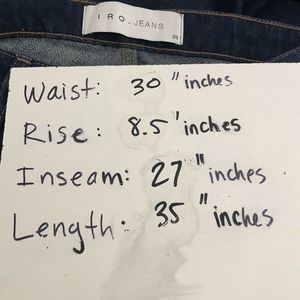 IRO.JEANS
26
Waist: 30" inches
Rise: 8.5" inches
Inseam: 27" inches
Length: 35" inches